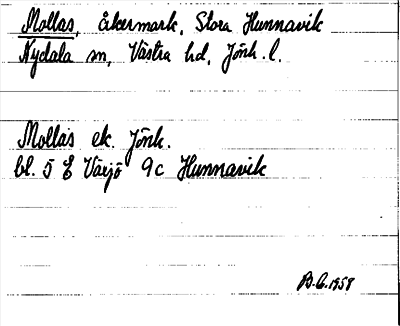 Mollas, åkermark, Stora Hunnavik
Nydala sn, Västra hd, Jönk. l.
Mollas ek. Jönk.
bl. 5 E Växjö 9c Hunnavik
B.G. 1958